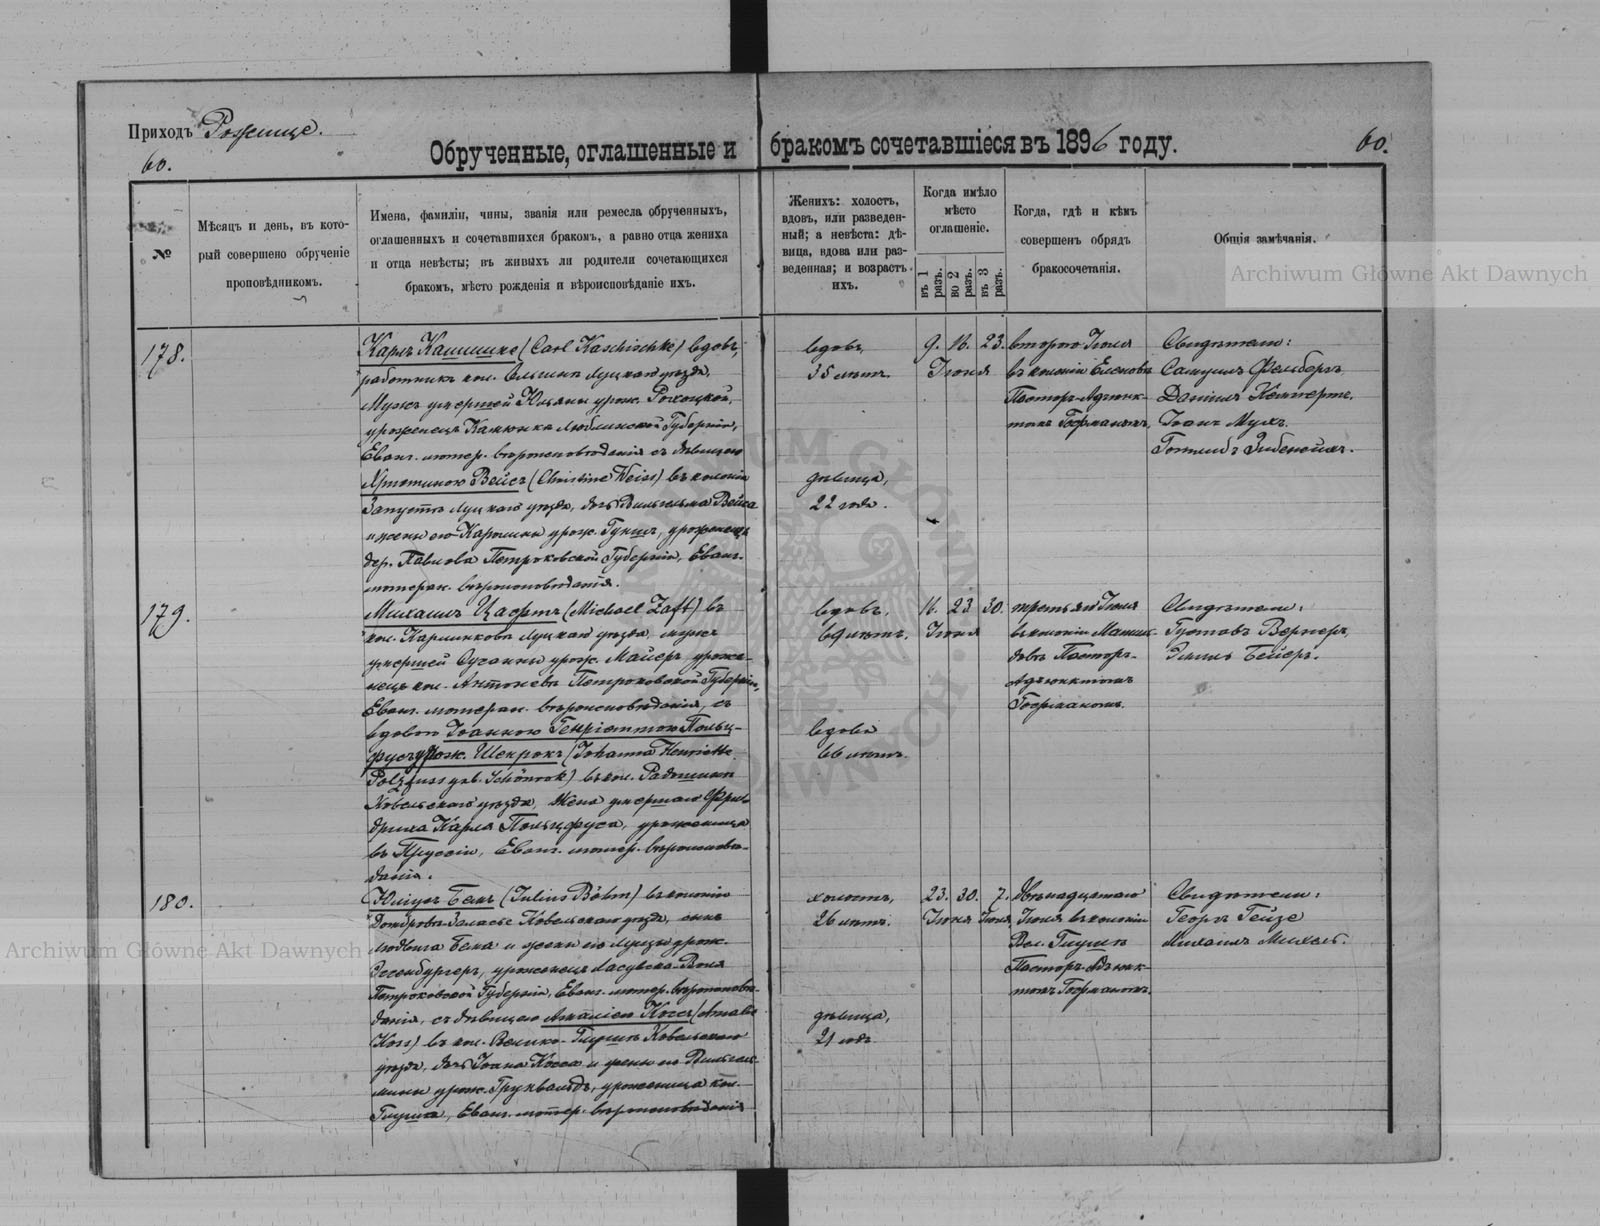 Приходъ Рожище.
60.
Обрученные, оглашенные и бракомъ сочетавшіеся въ 1896 году.
60.
№
Мѣсяцъ и день, въ кото-
рый совершено обрученіе
проповѣдникомъ.
Имена, фамиліи, чины, званія или ремесла обрученныхъ,
оглашенныхъ и сочетавшихся бракомъ, а равно отца жениха
и отца невѣсты; въ живыхъ ли родители сочетающихся
бракомъ, мѣсто рожденія и вѣроисповѣданіе ихъ.
Женихъ: холостъ,
вдовъ, или разведен-
ный; а невѣста: дѣ-
вица, вдова или раз-
веденная; и возрастъ
ихъ.
Когда имѣло
мѣсто
оглашеніе.
въ 1 разъ.
во 2 разъ.
въ 3 разъ.
Когда, гдѣ и кѣмъ
совершенъ обрядъ
бракосочетанія.
Общія замѣчанія.
Archiwum Główne Akt Dawnych
178.
Карлъ Кашишке (Carl Kaschischke) вдовъ,
работникъ кол. Луцкаго уѣзда,
Мужъ умершей Юліаны урож. Рохоцкой,
уроженецъ Люблинской Губерніи,
Еванг. лютер. вѣроисповѣданія съ дѣвицею
Христиною Вейсъ (Christine Weiss) въ колоніи
Запустъ Луцкаго уѣзда, дочь Вильгельма Вейса
и жены его Каролины урож. уроженецъ
дер. Павлова Петроковской Губерніи, Еванг.
лютеран. вѣроисповѣданія.
вдовъ,
35 лѣтъ.
дѣвица,
22 года.
9. 16. 23.
Іюня
второго Іюля
въ колоніи Еленовкѣ
Пасторъ-Адъюнк-
томъ Гофманомъ.
Свидѣтели:
Самуилъ Фельбергъ,
Даніилъ Кеммертъ,
Іоанъ Мухъ.
Готлибъ
179.
Михаилъ Цафтъ (Michael Zaft) въ
кол. Карлинкова Луцкаго уѣзда, мужъ
умершей Сусанны урож. Майеръ, уроже-
нецъ кол. Антоневъ Петроковской Губерніи,
Еванг. лютеран. вѣроисповѣданія, съ
вдовою Іоанною Генріеттою Польц-
фусъ урож. Шенрокъ (Johanna Henriette
Polzfuss geb. Schönrock) въ кол. Радошинъ
Ковельскаго уѣзда, Жена умершаго Фрид-
риха Карла Польцфуса, уроженица
въ Пруссіи, Еванг. лютер. вѣроисповѣ-
данія.
вдовъ,
69 лѣтъ.
вдова
66 лѣтъ.
16. 23 30.
Іюня
третьяго Іюля
въ колоніи
Пасторъ-
Адъюнктомъ
Гофманомъ.
Свидѣтели:
Густавъ Вернеръ,
Эмиль Бейеръ.
180.
Юліусъ Бемъ (Julius Böhm) въ колоніи
Домброва-Заласье Ковельскаго уѣзда, сынъ
Людвига Бема и жены его Луцы урож.
уроженецъ Ласувска-Воля
Петроковской Губерніи, Еванг. лютер. вѣроисповѣ-
данія, съ дѣвицею Амаліею Коссъ (Amalie
Koss) въ кол. Велико-Глуша Ковельскаго
уѣзда, дочь Іоана Косса и жены его Вильгель-
мины урож. Грунвальдъ, уроженица кол.
Глуша, Еванг. лютер. вѣроисповѣданія
холостъ,
26 лѣтъ.
дѣвица,
21 годъ
23. 30. 7.
Іюня Іюля
двѣнадцатаго
Іюля въ колоніи
Вел. Глуша
Пасторъ-Адъюнк-
томъ Гофманомъ.
Свидѣтели:
Георгъ Гейзе
Михаилъ Михель.
Archiwum Główne Akt Dawnych
ARCHIWUM GŁÓWNE AKT DAWNYCH